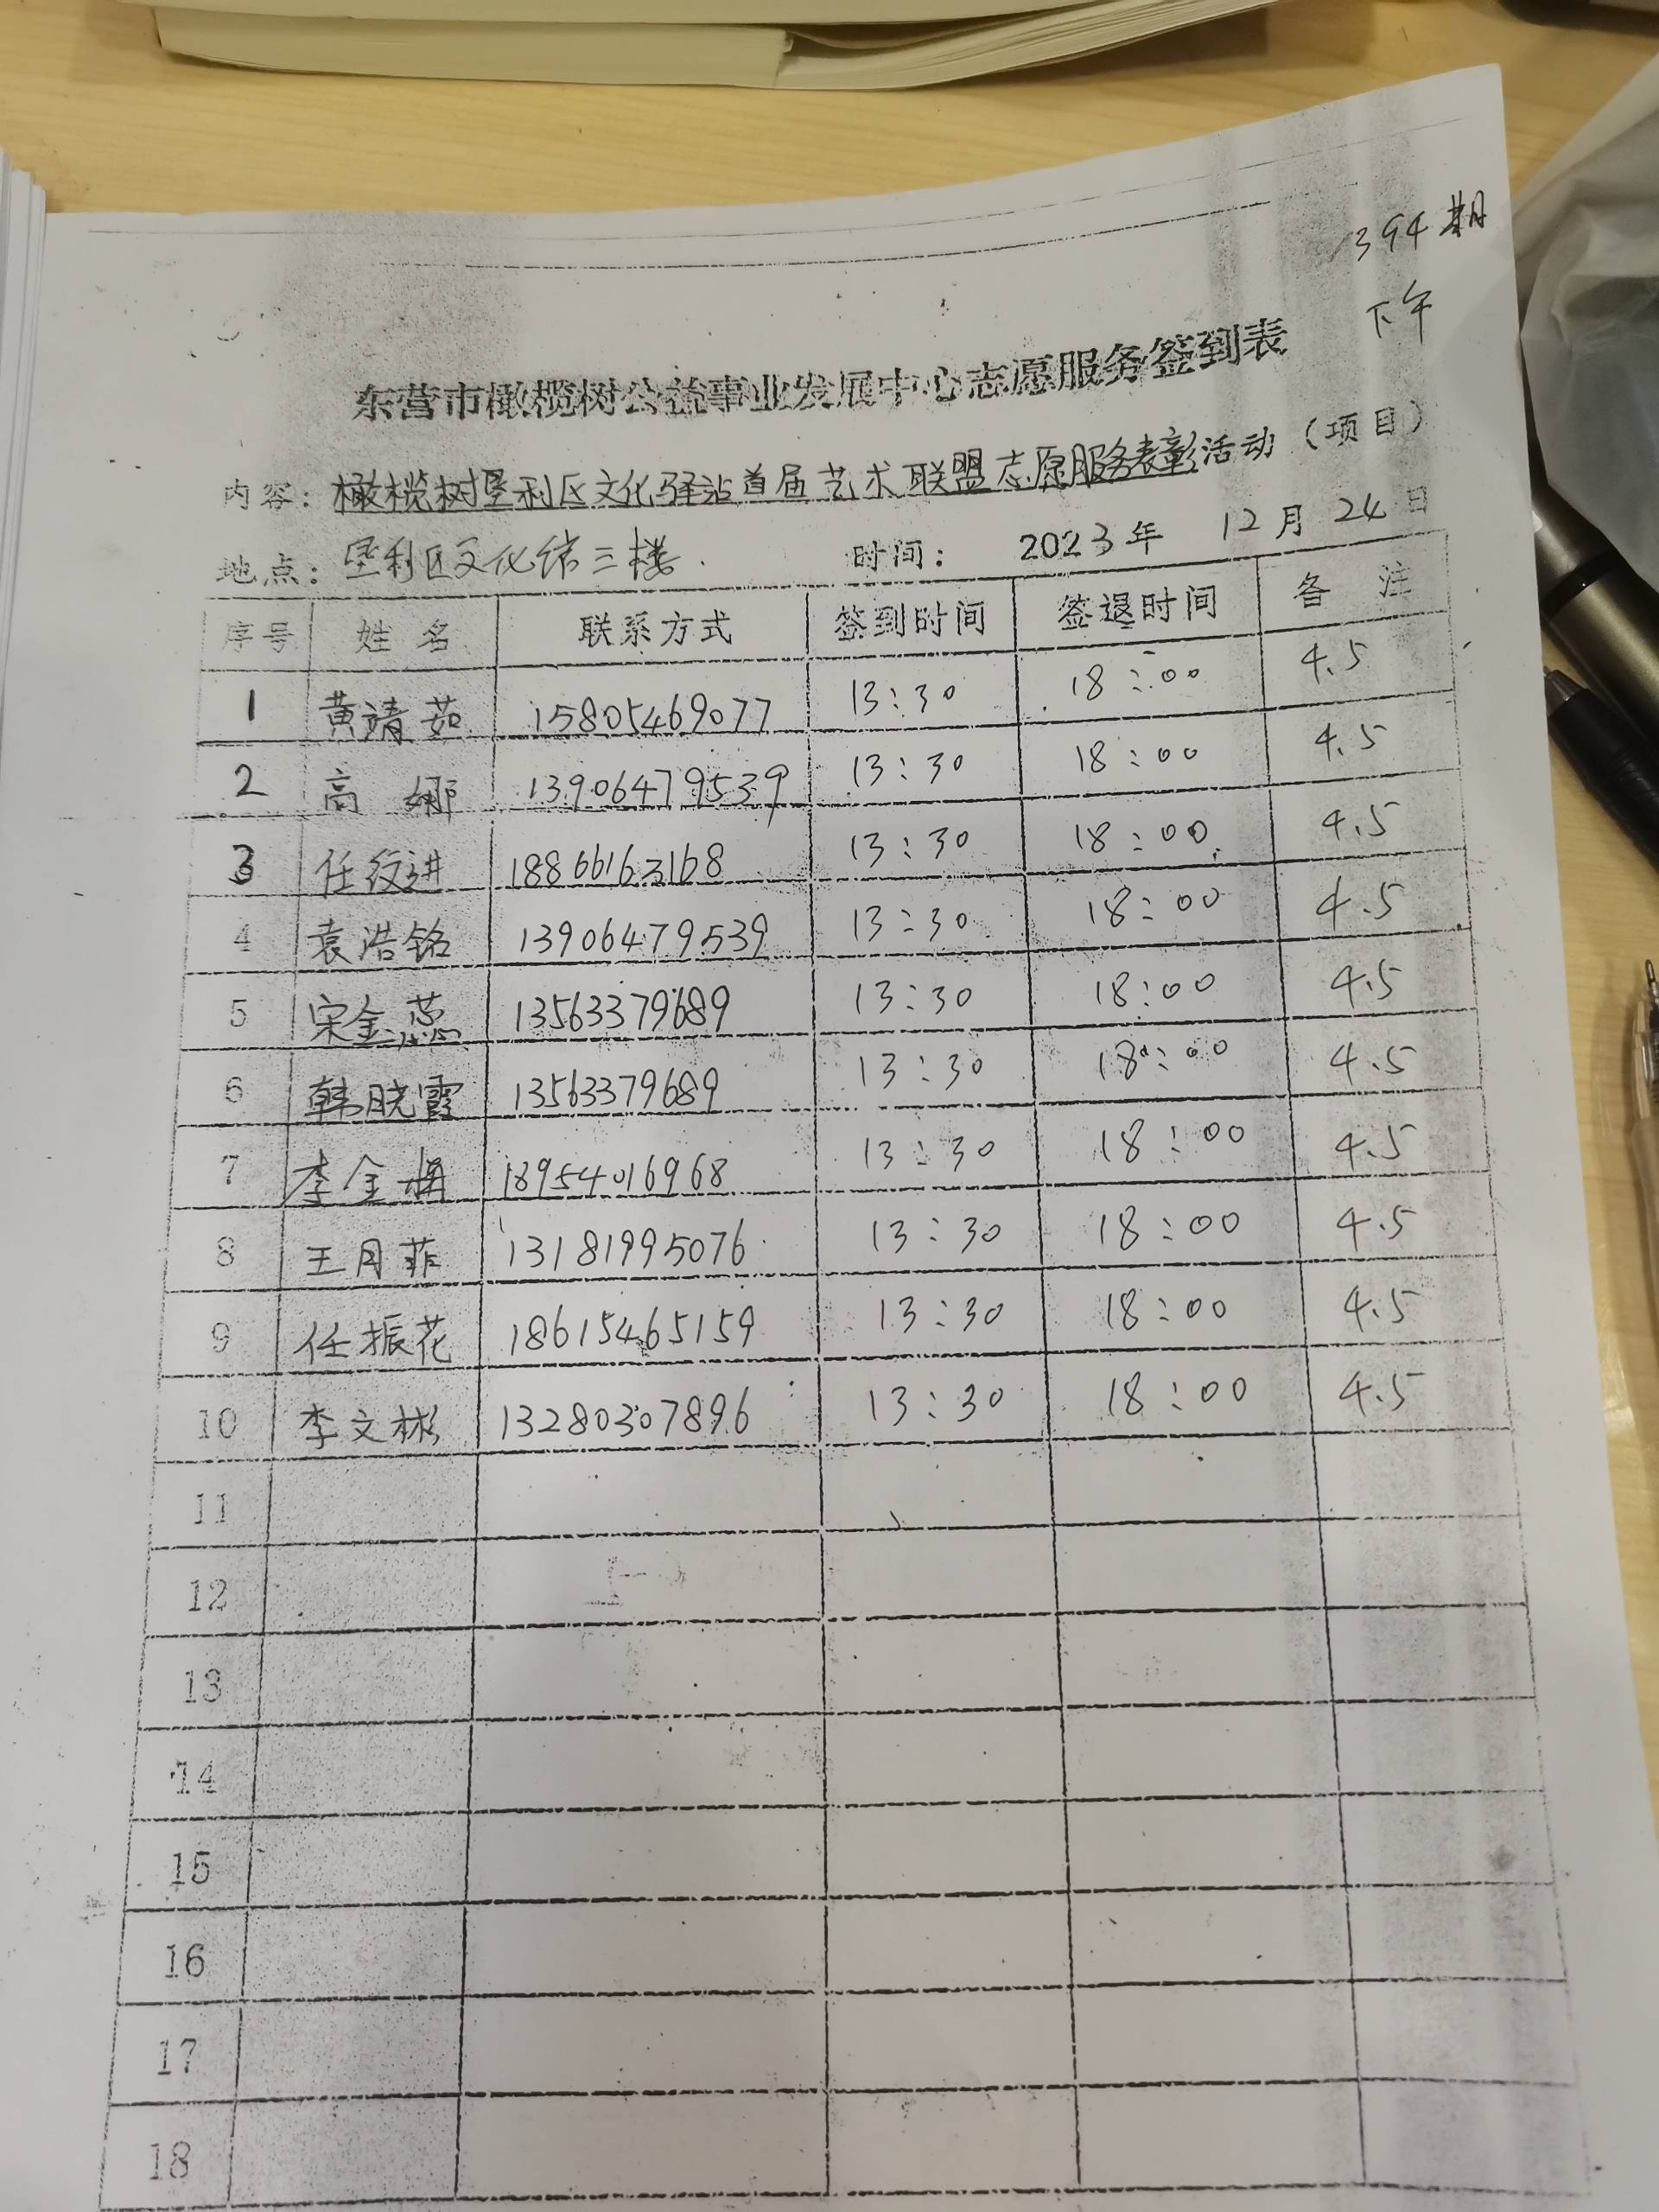 394期
下午
东营市橄榄树公益事业发展中心志愿服务签到表
内容：橄榄树垦利区文化驿站首届艺术联盟志愿服务表彰活动（项目）
地点：垦利区文化馆三楼 时间： 2023年 12月 24日
序号 姓名 联系方式 签到时间 签退时间 备注
1 黄靖茹 15805469077 13:30 18:00 4.5
2 高娜 13906479539 13:30 18:00 4.5
3 任纹进 18866163168 13:30 18:00 4.5
4 袁浩铭 13906479539 13:30 18:00 4.5
5 宋金蕊 13563379689 13:30 18:00 4.5
6 韩晓霞 13563379689 13:30 18:00 4.5
7 李金 18954016968 13:30 18:00 4.5
8 王月菲 13181995076 13:30 18:00 4.5
9 任振花 18615465159 13:30 18:00 4.5
10 李文彬 13280307896 13:30 18:00 4.5
11
12
13
14
15
16
17
18